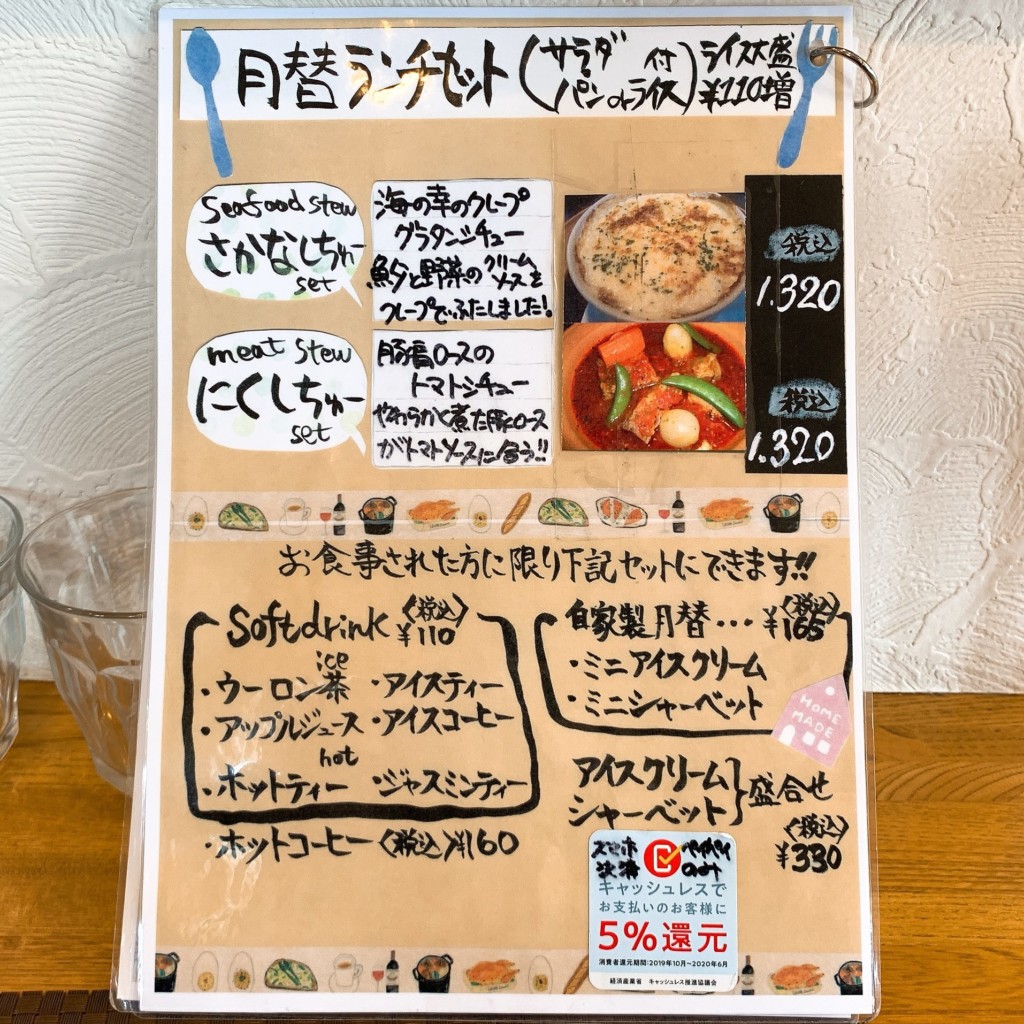 月替ランチセット(サラダ付 パンorライス)
ライス大盛
¥110増
Seafood stew
さかなしちゅー
set
海の幸のクレープ
グラタンシチュー
魚と野菜のクリームソースを
クレープでふたしました!
税込
1.320
meat stew
にくしちゅー
set
豚肩ロースの
トマトシチュー
やわらかく煮た豚ロース
がトマトソースに合う!!
税込
1.320
お食事された方に限り下記セットにできます!!
Softdrink〈税込〉¥110
ice
・ウーロン茶 ・アイスティー
・アップルジュース ・アイスコーヒー
hot
・ホットティー ・ジャスミンティー
・ホットコーヒー〈税込〉¥160
自家製月替…〈税込〉¥165
・ミニアイスクリーム
・ミニシャーベット
HOME
MADE
アイスクリーム
シャーベット}盛合せ
〈税込〉
¥330
スマホ決済 ペイペイのみ
キャッシュレスで
お支払いのお客様に
5%還元
消費者還元期間:2019年10月~2020年6月
経済産業省 キャッシュレス推進協議会